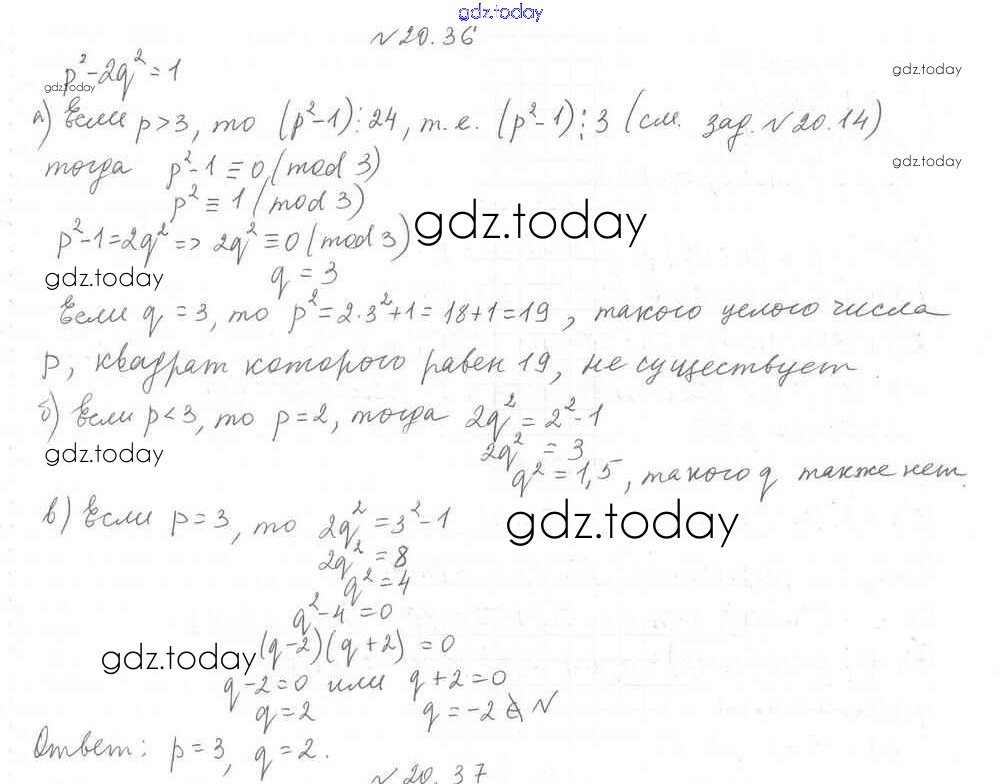 gdz.today
№20.36
p²-2q²=1
gdz.today
gdz.today
а) Если p>3, то (p²-1)⋮24, т.е. (p²-1)⋮3 (см. зад. №20.14)
gdz.today
тогда p²-1≡0 (mod 3)
p²≡1 (mod 3)
gdz.today
p²-1=2q² => 2q²≡0 (mod 3)
gdz.today
q=3
Если q=3, то p²=2·3²+1=18+1=19, такого целого числа
p, квадрат которого равен 19, не существует.
б) Если p<3, то p=2, тогда 2q²=2²-1
gdz.today
2q²=3
q²=1,5, такого q также нет.
в) Если p=3, то 2q²=3²-1
gdz.today
2q²=8
q²=4
q²-4=0
gdz.today
(q-2)(q+2)=0
q-2=0 или q+2=0
q=2 q=-2∉N
Ответ: p=3, q=2.
№20.37